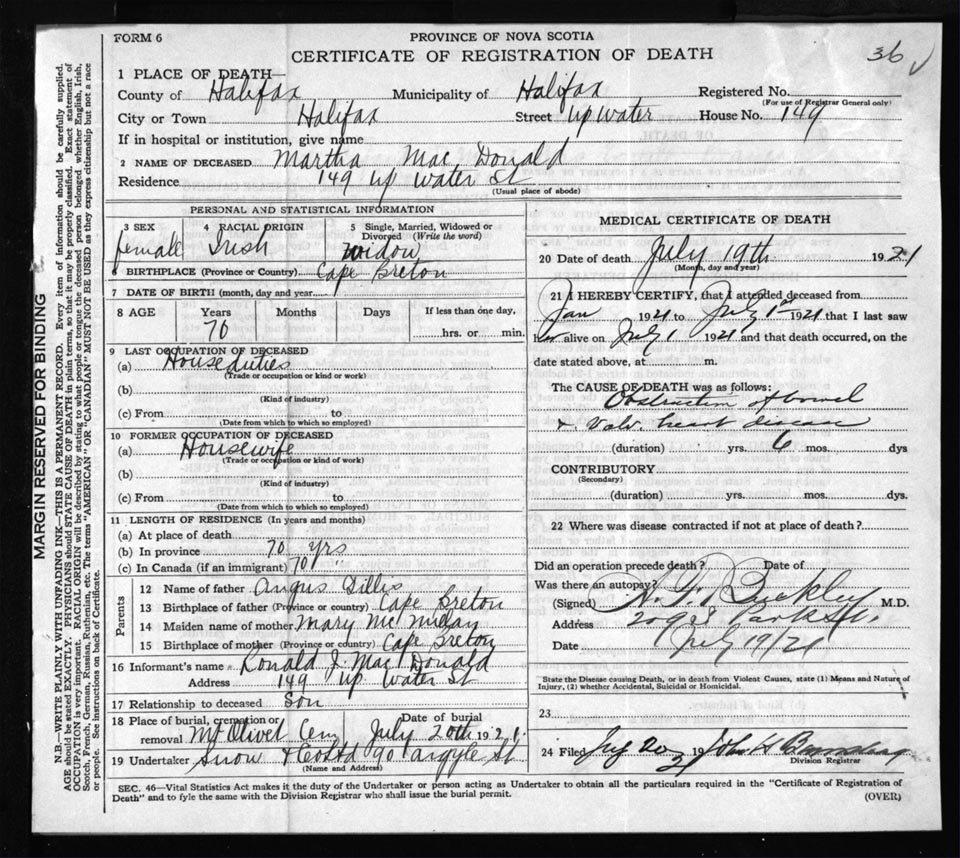 FORM 6
PROVINCE OF NOVA SCOTIA
CERTIFICATE OF REGISTRATION OF DEATH
36
1 PLACE OF DEATH—
County of Halifax Municipality of Halifax Registered No.
(For use of Registrar General only)
City or Town Halifax Street Up Water House No. 149
If in hospital or institution, give name
2 NAME OF DECEASED Martha Mac Donald
Residence 149 Up Water St
(Usual place of abode)
PERSONAL AND STATISTICAL INFORMATION
3 SEX 4 RACIAL ORIGIN 5 Single, Married, Widowed or Divorced (Write the word)
female Irish Widow
6 BIRTHPLACE (Province or Country) Cape Breton
7 DATE OF BIRTH (month, day and year)
8 AGE Years Months Days If less than one day,
70 hrs. or min.
9 LAST OCCUPATION OF DECEASED
(a) House duties
(Trade or occupation or kind of work)
(b)
(Kind of industry)
(c) From to
(Date from which to which so employed)
10 FORMER OCCUPATION OF DECEASED
(a) Housewife
(Trade or occupation or kind of work)
(b)
(Kind of industry)
(c) From to
(Date from which to which so employed)
11 LENGTH OF RESIDENCE (In years and months)
(a) At place of death
(b) In province 70 yrs
(c) In Canada (if an immigrant) 70 "
Parents
12 Name of father Angus Gillis
13 Birthplace of father (Province or country) Cape Breton
14 Maiden name of mother Mary
15 Birthplace of mother (Province or country) Cape Breton
16 Informant's name Ronald J. Mac Donald
Address 149 Up Water St
17 Relationship to deceased Son
18 Place of burial, cremation or removal Mt Olivet Cem Date of burial July 20th 1921.
19 Undertaker Snow & Co Ltd 90 Argyle St
(Name and Address)
MEDICAL CERTIFICATE OF DEATH
20 Date of death July 19th 1921
(Month, day and year)
21 I HEREBY CERTIFY, that I attended deceased from
Jan 1921 to July 1st 1921 that I last saw
her alive on July 1 1921 and that death occurred, on the
date stated above, at m.
The CAUSE OF DEATH was as follows:
Obstruction of bowel
& Valv. heart disease
(duration) yrs. 6 mos. dys
CONTRIBUTORY
(Secondary)
(duration) yrs. mos. dys.
22 Where was disease contracted if not at place of death?
Did an operation precede death? Date of
Was there an autopsy?
(Signed) Buckley M.D.
Address
Date July 19/21
State the Disease causing Death, or in death from Violent Causes, state (1) Means and Nature of
Injury, (2) whether Accidental, Suicidal or Homicidal.
23
24 Filed July 20 1921 John H
Division Registrar
SEC. 46—Vital Statistics Act makes it the duty of the Undertaker or person acting as Undertaker to obtain all the particulars required in the "Certificate of Registration of
Death" and to fyle the same with the Division Registrar who shall issue the burial permit.
(OVER)
MARGIN RESERVED FOR BINDING
N.B.—WRITE PLAINLY WITH UNFADING INK—THIS IS A PERMANENT RECORD. Every item of information should be carefully supplied.
AGE should be stated EXACTLY. PHYSICIANS should STATE CAUSE OF DEATH in plain terms, so that it may be properly classified. Exact statement of
OCCUPATION is very important. RACIAL ORIGIN will be described by stating to what people or tongue the deceased person belonged whether English, Irish,
Scotch, French, German, Russian, Ruthenian, etc. The terms "AMERICAN" or "CANADIAN" MUST NOT BE USED as they express citizenship but not a race
or people. See instructions on back of Certificate.